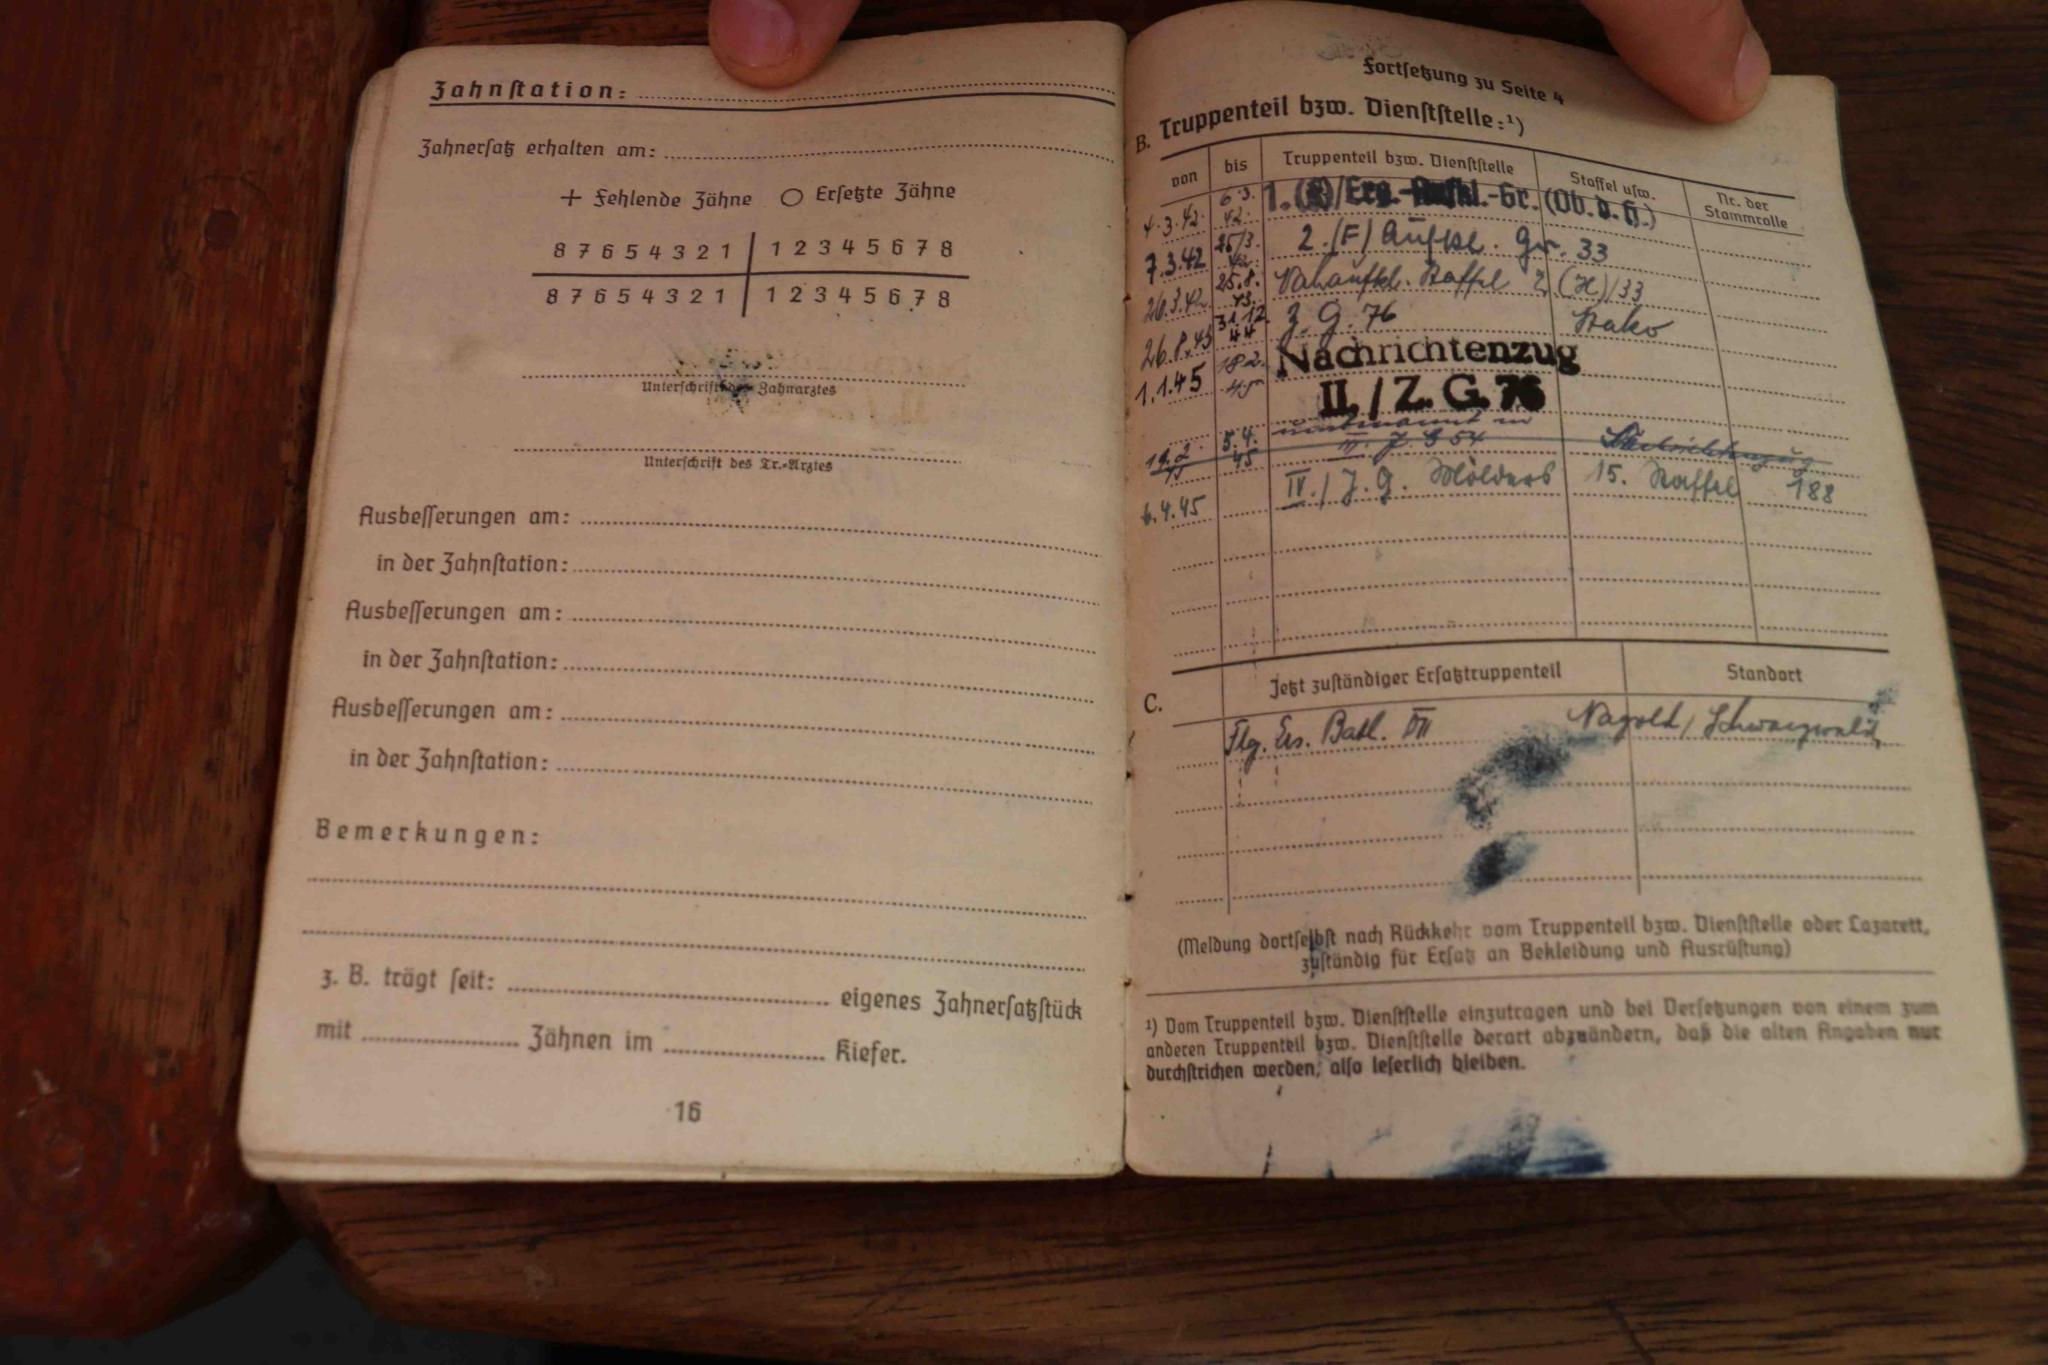 Zahnstation:
Zahnersatz erhalten am:
+ Fehlende Zähne ○ Ersetzte Zähne
8 7 6 5 4 3 2 1 | 1 2 3 4 5 6 7 8
8 7 6 5 4 3 2 1 | 1 2 3 4 5 6 7 8
Unterschrift des Zahnarztes
Unterschrift des Tr.-Arztes
Ausbesserungen am:
in der Zahnstation:
Ausbesserungen am:
in der Zahnstation:
Ausbesserungen am:
in der Zahnstation:
Bemerkungen:
z. B. trägt seit: eigenes Zahnersatzstück
mit Zähnen im Kiefer.
16
Fortsetzung zu Seite 4
B. Truppenteil bzw. Dienststelle:¹)
von bis Truppenteil bzw. Dienststelle Staffel usw. Nr. der Stammrolle
4.3.42. 6.3.42. 1. /Erg.- -Gr. (Ob.d.H.)
7.3.42 25/3.42 2.(F) Aufkl. Gr. 33
26.3.42 25.8.43. Nahaufkl. Staffel 2(H)/33
26.8.43 31.12.44 Z. G. 76 Stako
1.1.45 18.2.45 Nachrichtenzug
II. / Z. G. 76
umbenannt in
19.2.45 5.4.45 III. J. G 54 Nachrichtenzug
6.4.45 IV./ J. G. Mölders 15. Staffel 188
C. Jetzt zuständiger Ersatztruppenteil Standort
Flg. Ers. Batl. VII Nagold / Schwarzwald
(Meldung dortselbst nach Rückkehr vom Truppenteil bzw. Dienststelle oder Lazarett,
zuständig für Ersatz an Bekleidung und Ausrüstung)
¹) Vom Truppenteil bzw. Dienststelle einzutragen und bei Versetzungen von einem zum
anderen Truppenteil bzw. Dienststelle derart abzuändern, daß die alten Angaben nur
durchstrichen werden, also leserlich bleiben.